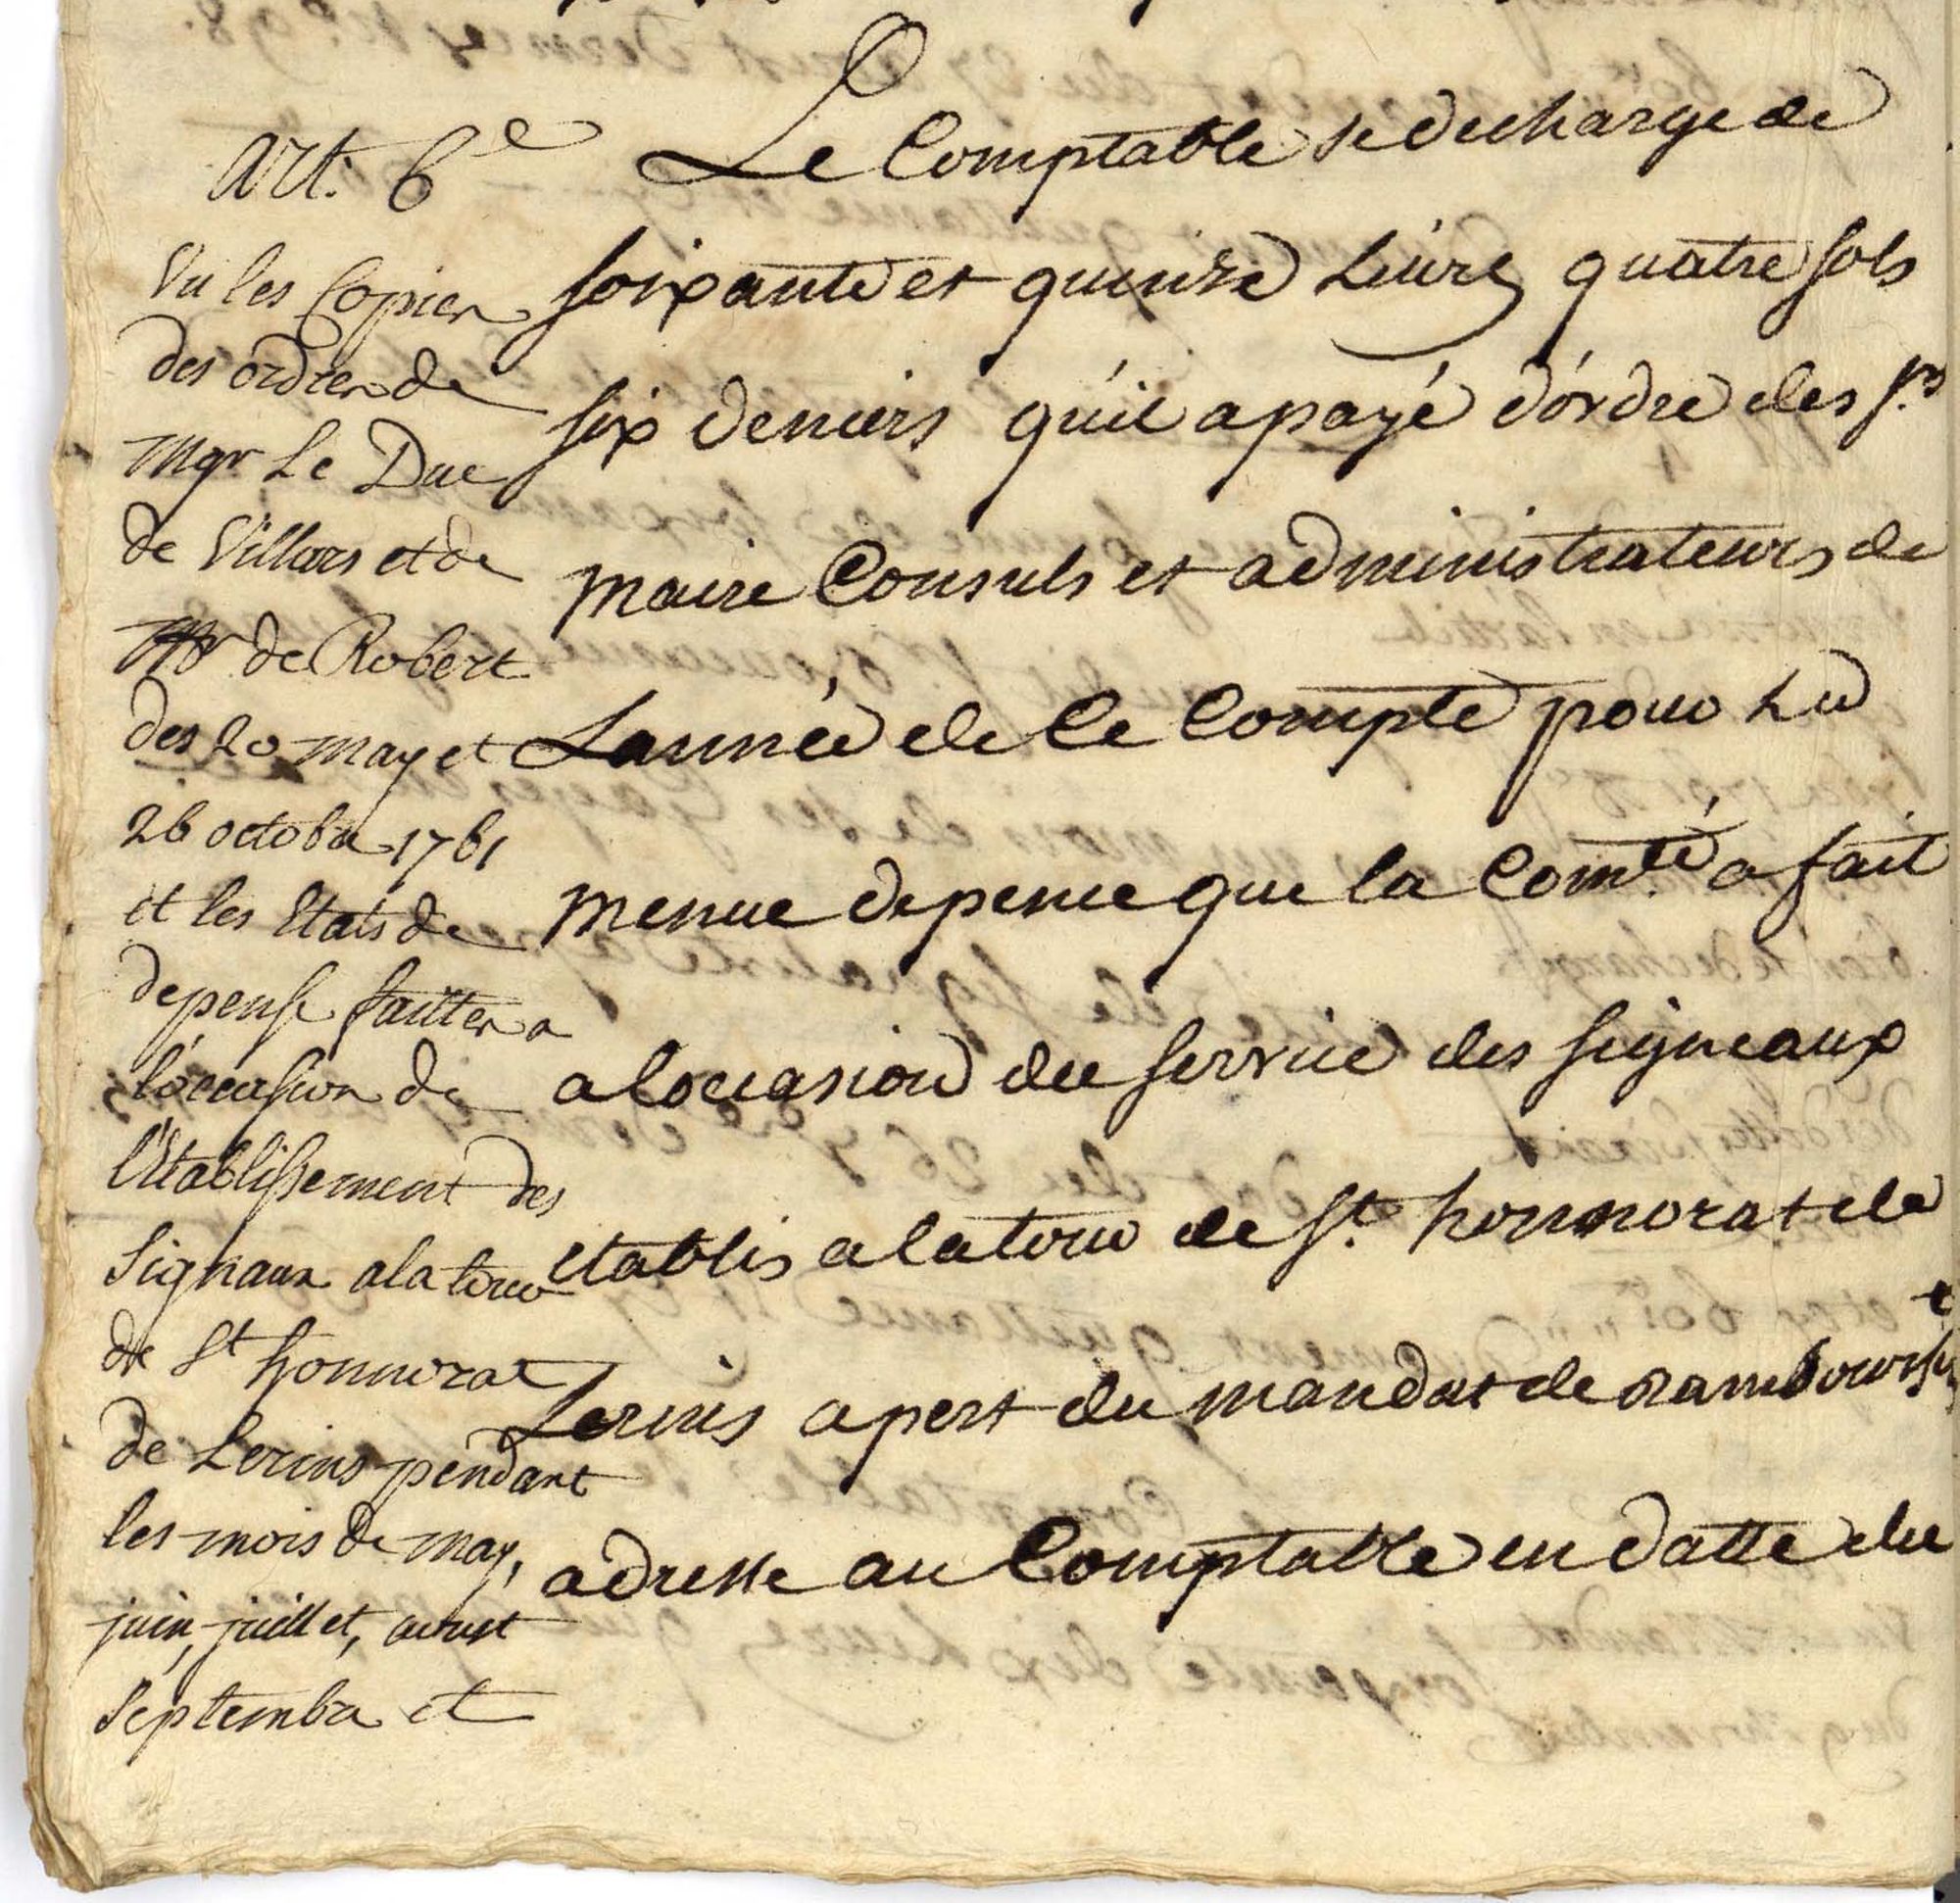 Art. 6e
Vu les Copies
des ordres de
Mgr Le Duc
de Villars et de
Mr de Robert
des 20 may et
26 octobre 1761
et les Etats de
depense faittes a
l'occasion de
l'Etablissement des
Signaux a la tour
de St honnorat
de Lerins pendant
les mois de may,
juin, juillet, aoust
Septembre et
Le Comptable se decharge de
soixante et quinze Livres quatre sols
six deniers qu'il a payé d'ordre des srs
maire Consuls et administrateurs de
Lannée de Ce Compte pour La
menue depense que la Comté a fait
a locasion du service des signeaux
etablis a la tour de St honnorat de
Lerins apert du mandat de
adresse au Comptable en datte du